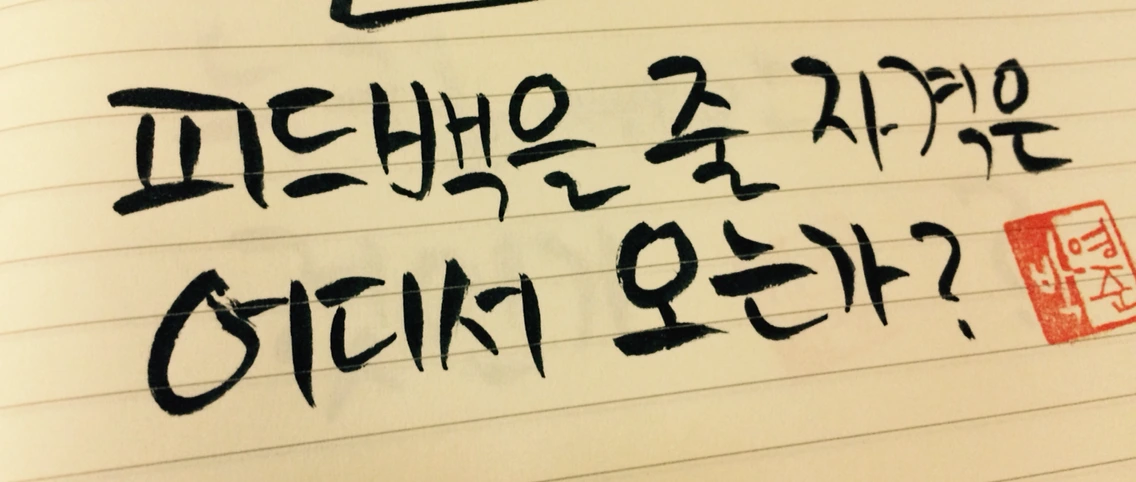 피드백을 줄 자격은
어디서 오는가?